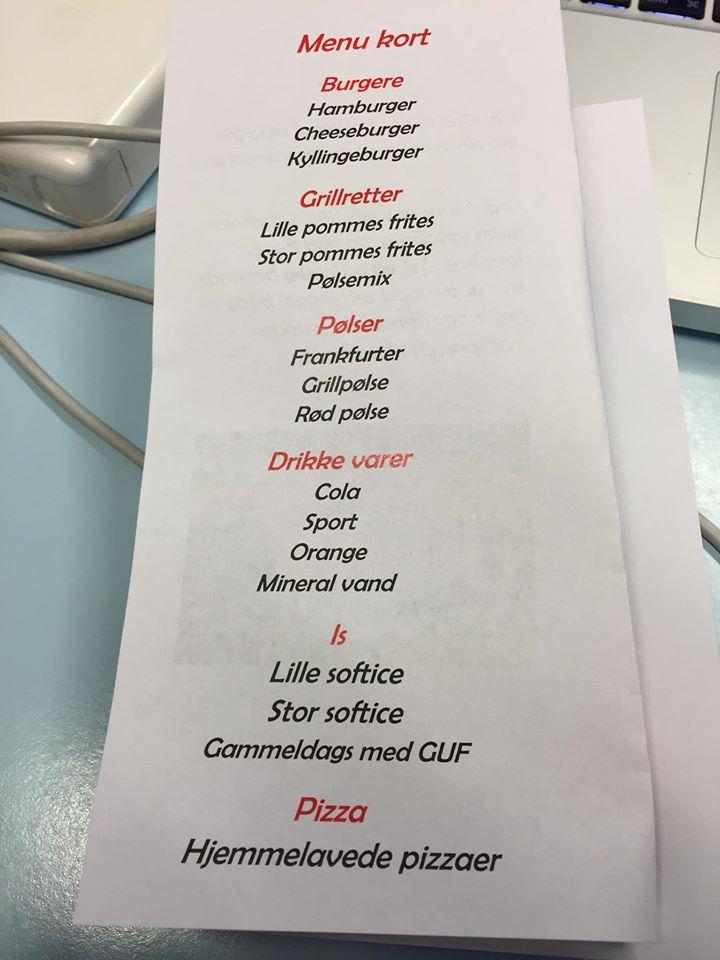 Menu kort
Burgere
Hamburger
Cheeseburger
Kyllingeburger
Grillretter
Lille pommes frites
Stor pommes frites
Pølsemix
Pølser
Frankfurter
Grillpølse
Rød pølse
Drikke varer
Cola
Sport
Orange
Mineral vand
Is
Lille softice
Stor softice
Gammeldags med GUF
Pizza
Hjemmelavede pizzaer